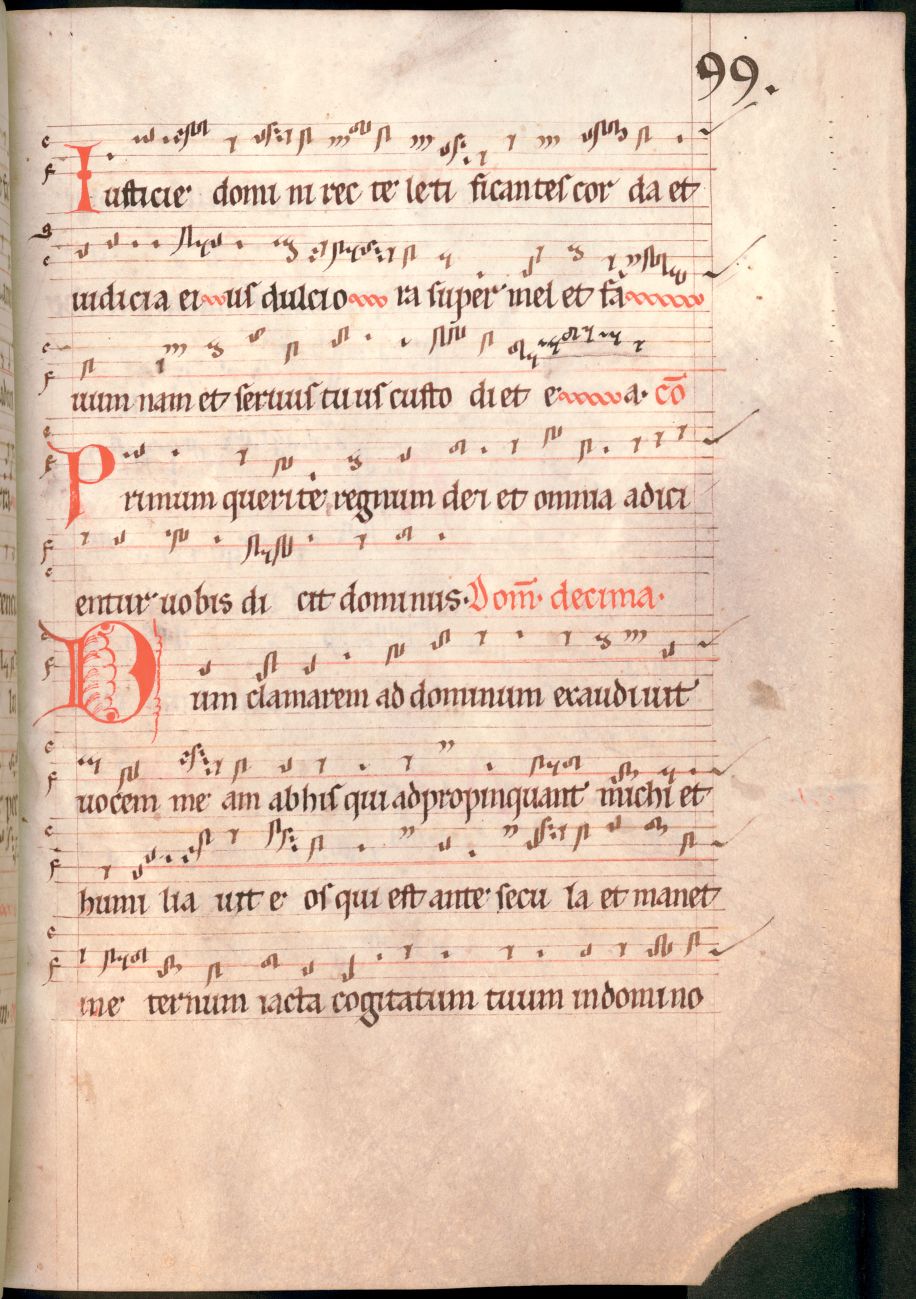 99.
Iusticie domini recte letificantes corda et
iudicia eius dulciora super mel et fa
uum nam et seruus tuus custodiet ea. cō
Primum querite regnum dei et omnia adici
entur uobis dicit dominus. Dom̄. decima.
Dum clamarem ad dominum exaudiuit
uocem meam ab his qui adpropinquant michi et
humiliauit eos qui est ante secula et manet
ine ternum iacta cogitatum tuum in domino